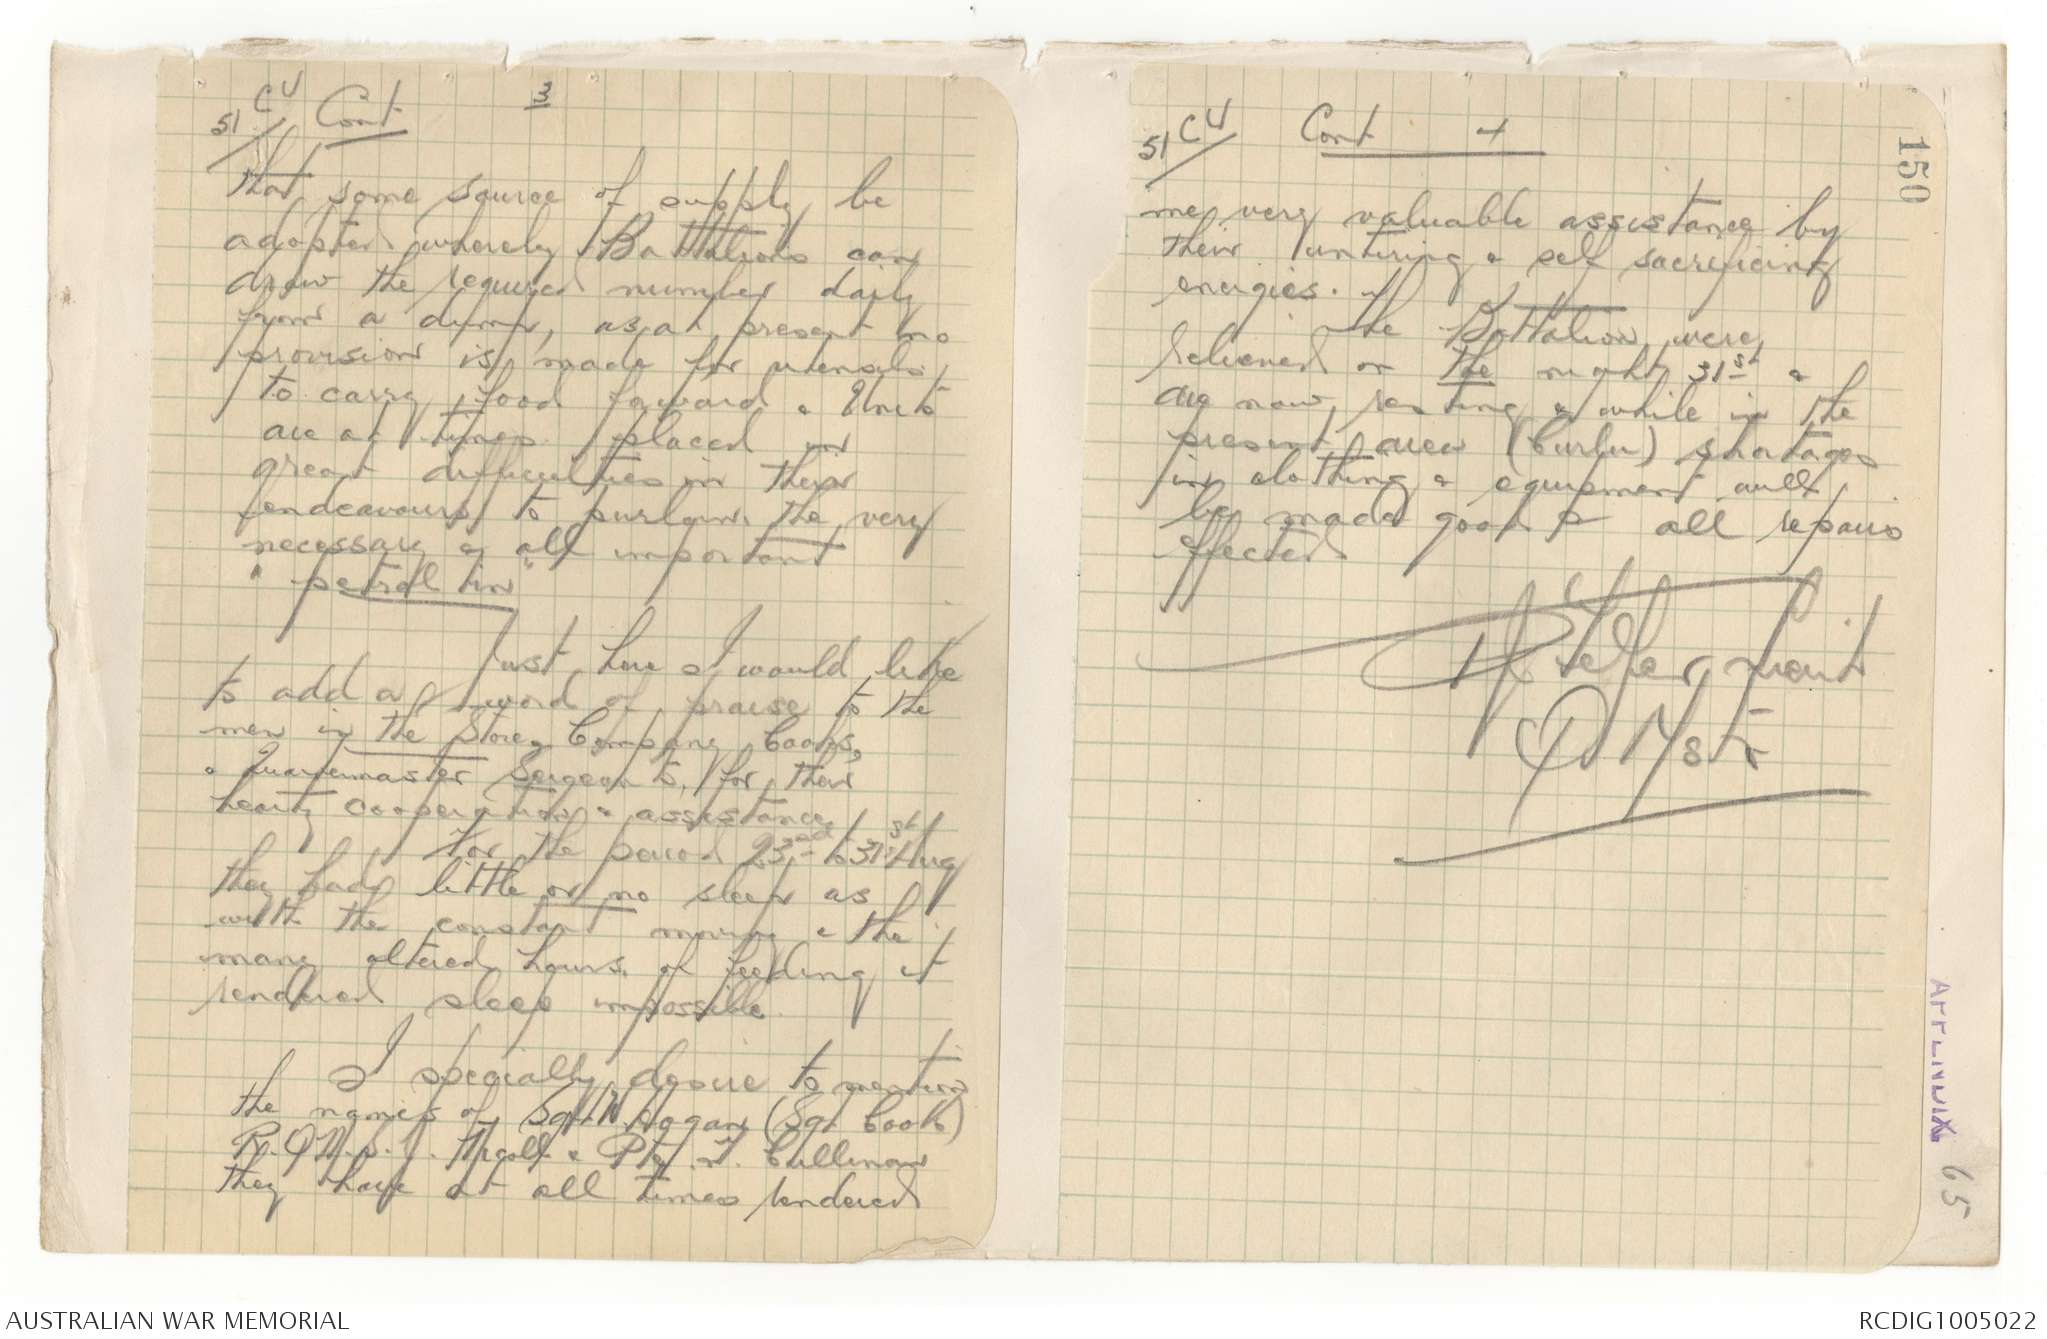 51 CU Cont 3
that some source of supply be
adopted whereby Battalions can
draw the required number daily
from a dump, as at present no
provision is made for utensils
to carry food forward & Units
are at times placed in
great difficulties in their
endeavours to purloin the very
necessary & all important
"petrol tin"
Just here I would like
to add a word of praise to the
men in the Store, Company Cooks,
& Quartermaster Sergeants, for their
hearty cooperation & assistance
For the period 23rd to 31st Aug
they had little or no sleep as
with the constant moving & the
many altered hours of feeding it
rendered sleep impossible.
I specially desire to mention
the names of Sgt W. Hogan (Sgt Cook)
R.Q.M.S. J. & Pte. Cullinan
they have at all times rendered
51 CU Cont 4
me very valuable assistance by
their untiring & self sacrificing
energies.
The Battalion were
relieved on the night 31st &
are now resting & while in the
present area (Curlu) shortages
in clothing & equipment will
be made good & all repairs
effected
QMstr
150
APPENDIX 65
AUSTRALIAN WAR MEMORIAL
RCDIG1005022